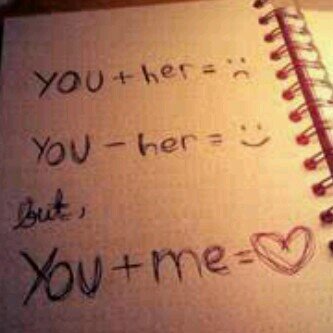 You + her = :(
You - her = :)
but,
You + me = ♡